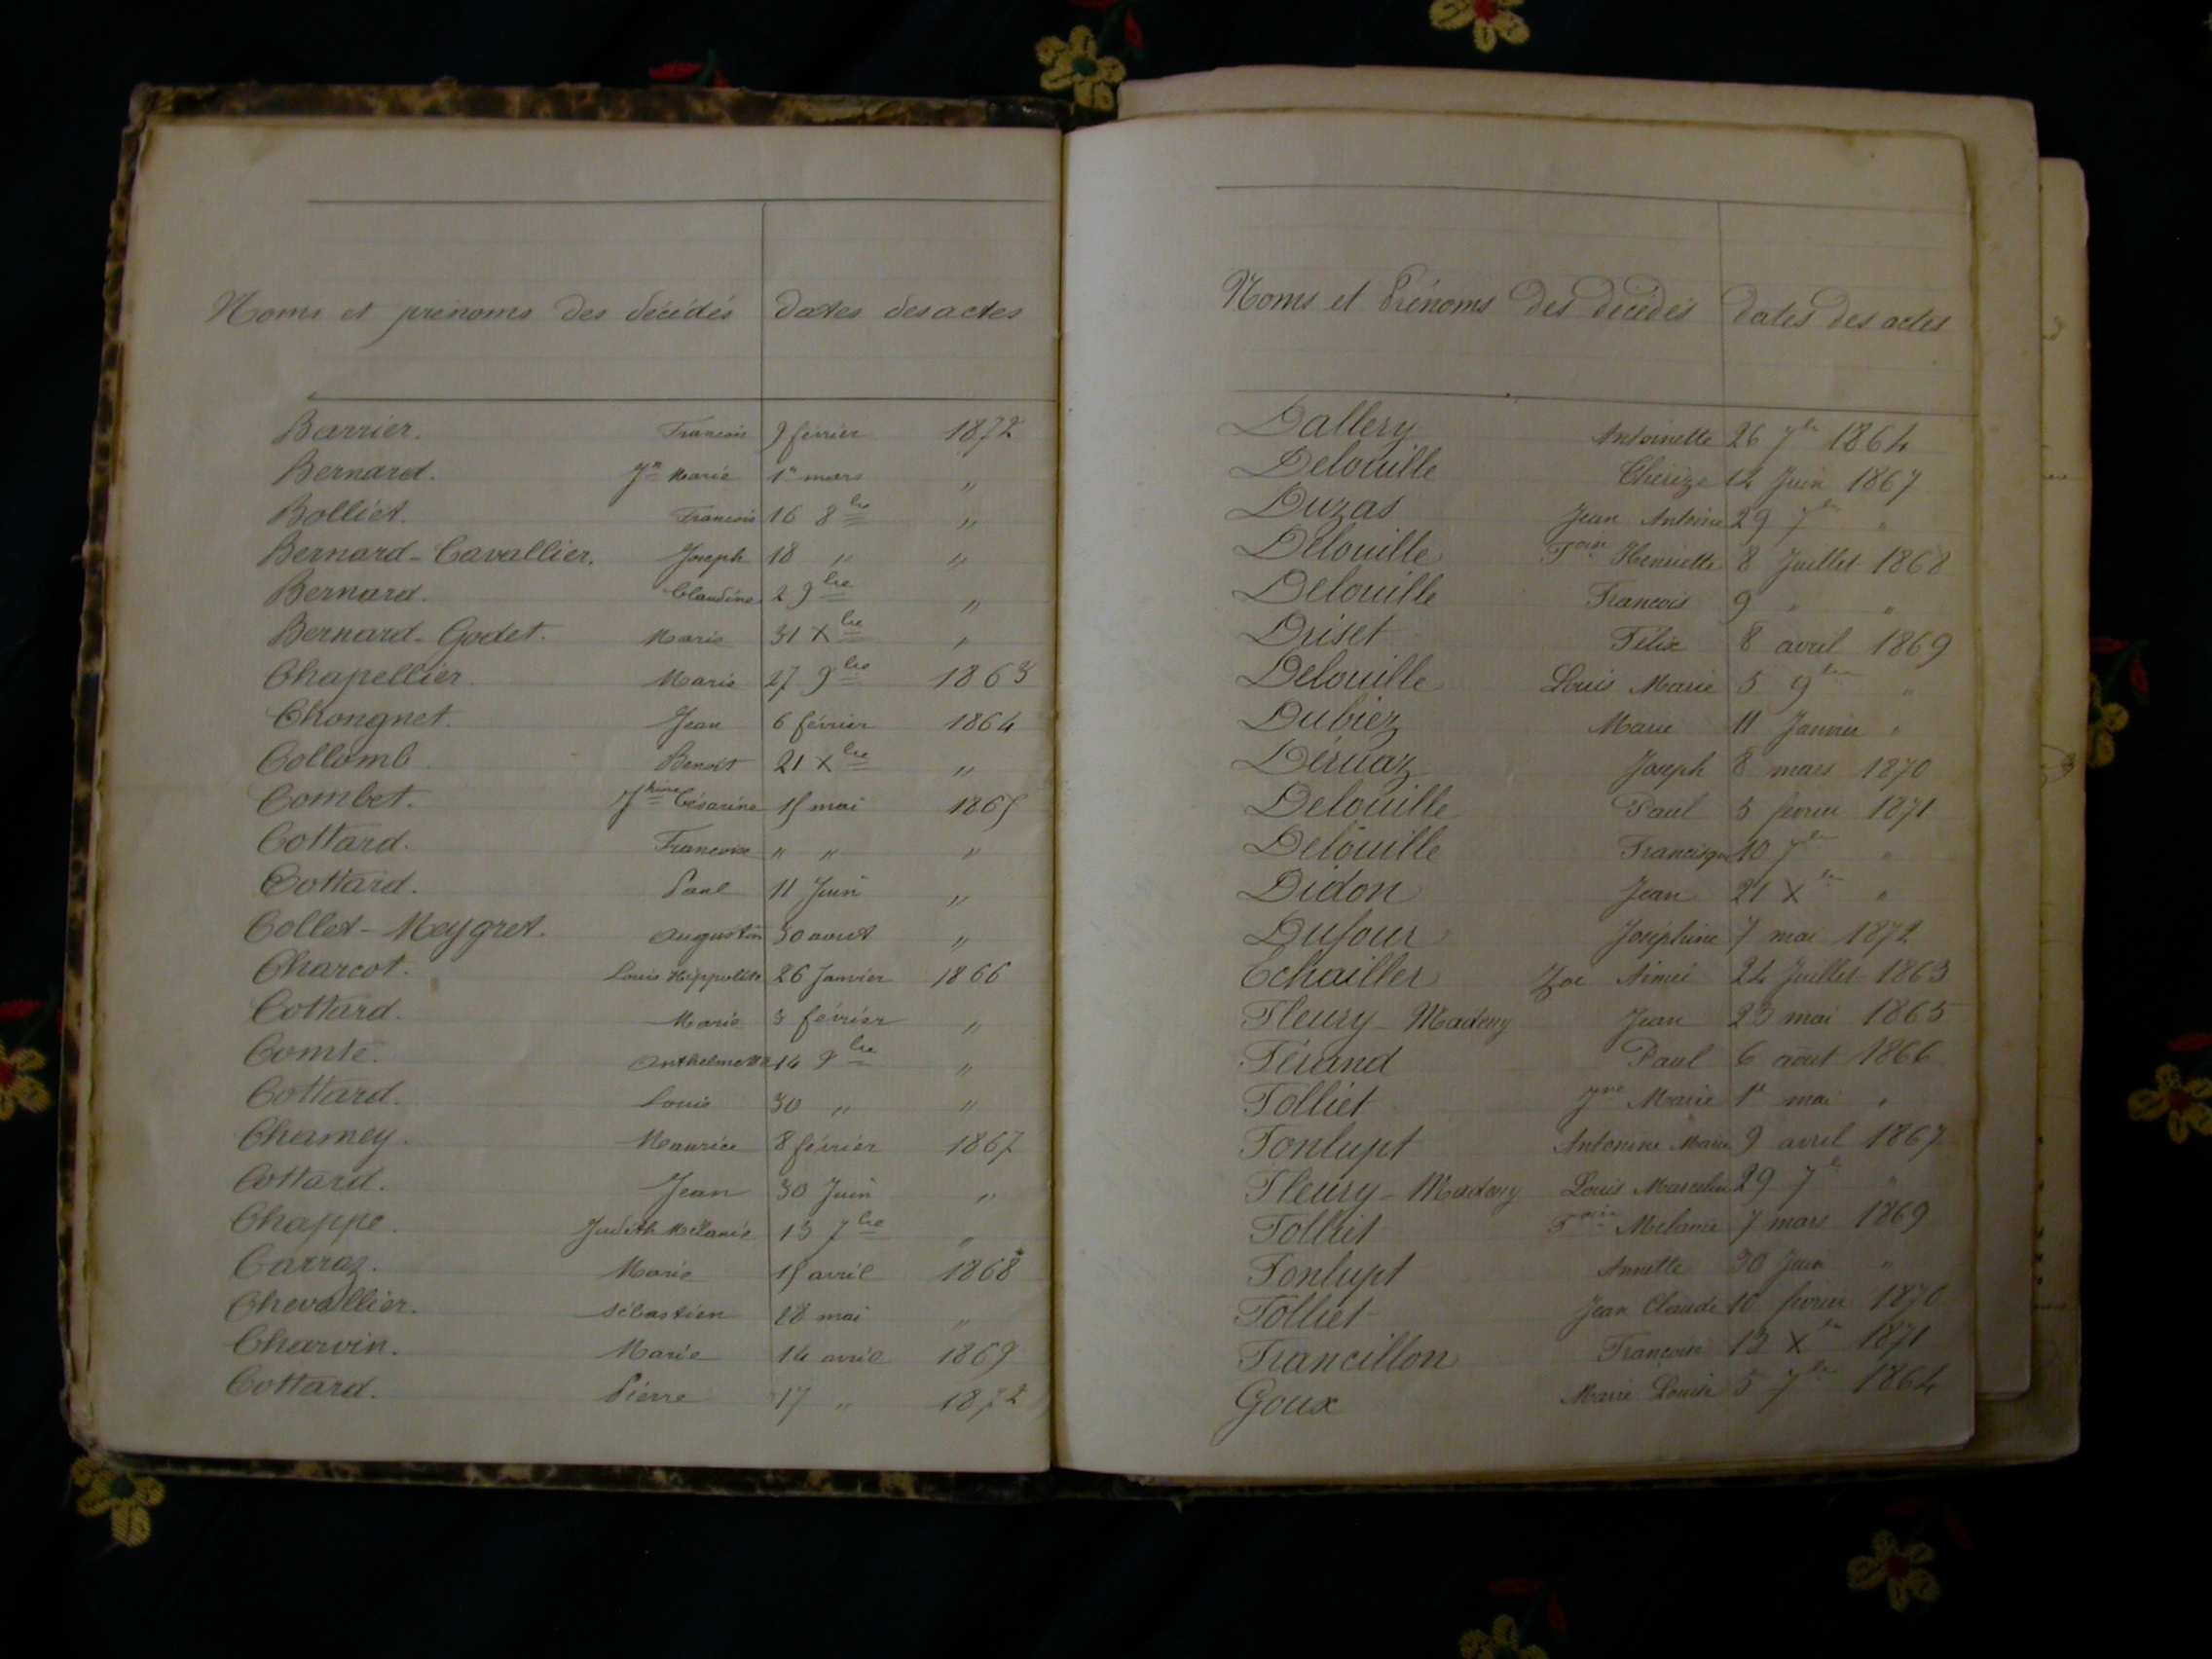 Noms et prénoms des décédés dates des actes
Barrier. François 9 février 1872
Bernard. Jn Marie 1er mars "
Bolliet. François 16 8bre "
Bernard-Cavallier. Joseph 18 " "
Bernard. Claudine 2 9bre "
Bernard-Godet. Marie 31 Xbre "
Chapellier. Marie 27 9bre 1863
Chongnet. Jean 6 février 1864
Collomb Benoit 21 Xbre "
Combet. Jhine Césarine 15 mai 1865
Cottard. Francoise " " "
Cottard. Paul 11 Juin "
Collet-Meygret. Augustin 30 aout "
Charcot. Louis Hippolite 26 Janvier 1866
Cottard. Marie 3 février "
Comte. Anthelmette 14 9bre "
Cottard. Louis 30 " "
Chamey. Maurice 8 février 1867
Cottard. Jean 30 Juin "
Chappe. Judith Mélanie 13 7bre "
Carraz. Marie 15 avril 1868
Chevallier. Sébastien 28 mai "
Charvin. Marie 14 avril 1869
Cottard. Pierre 17 " 1872
Noms et Prénoms des décédés dates des actes
Dallery Antoinette 26 7bre 1864
Delouille Thérèze 12 Juin 1867
Duzas Jean Antoine 29 7bre "
Delouille Foise Henriette 8 Juillet 1868
Delouille Francois 9 " "
Driset Félix 8 avril 1869
Delouille Louis Marie 5 9bre "
Dubiez Marie 11 Janvier "
Déruaz Joseph 8 mars 1870
Delouille Paul 3 fevrier 1871
Delouille Francisque 10 7bre "
Didon Jean 21 Xbre "
Dufour Joséphine 7 mai 1872
Echailler Zoe Aimée 24 Juillet 1863
Fleury-Madeny Jean 23 mai 1865
Férand Paul 6 août 1866
Folliet Jne Marie 1er mai "
Fonlupt Antonine Marie 9 avril 1867
Fleury-Madeny Louis Marcelin 29 7bre "
Folliet Foise Mélanie 7 mars 1869
Fonlupt Annette 30 Juin "
Folliet Jean Claude 10 fevrier 1870
Francillon François 12 Xbre 1871
Goux Marie Louise 5 7bre 1864